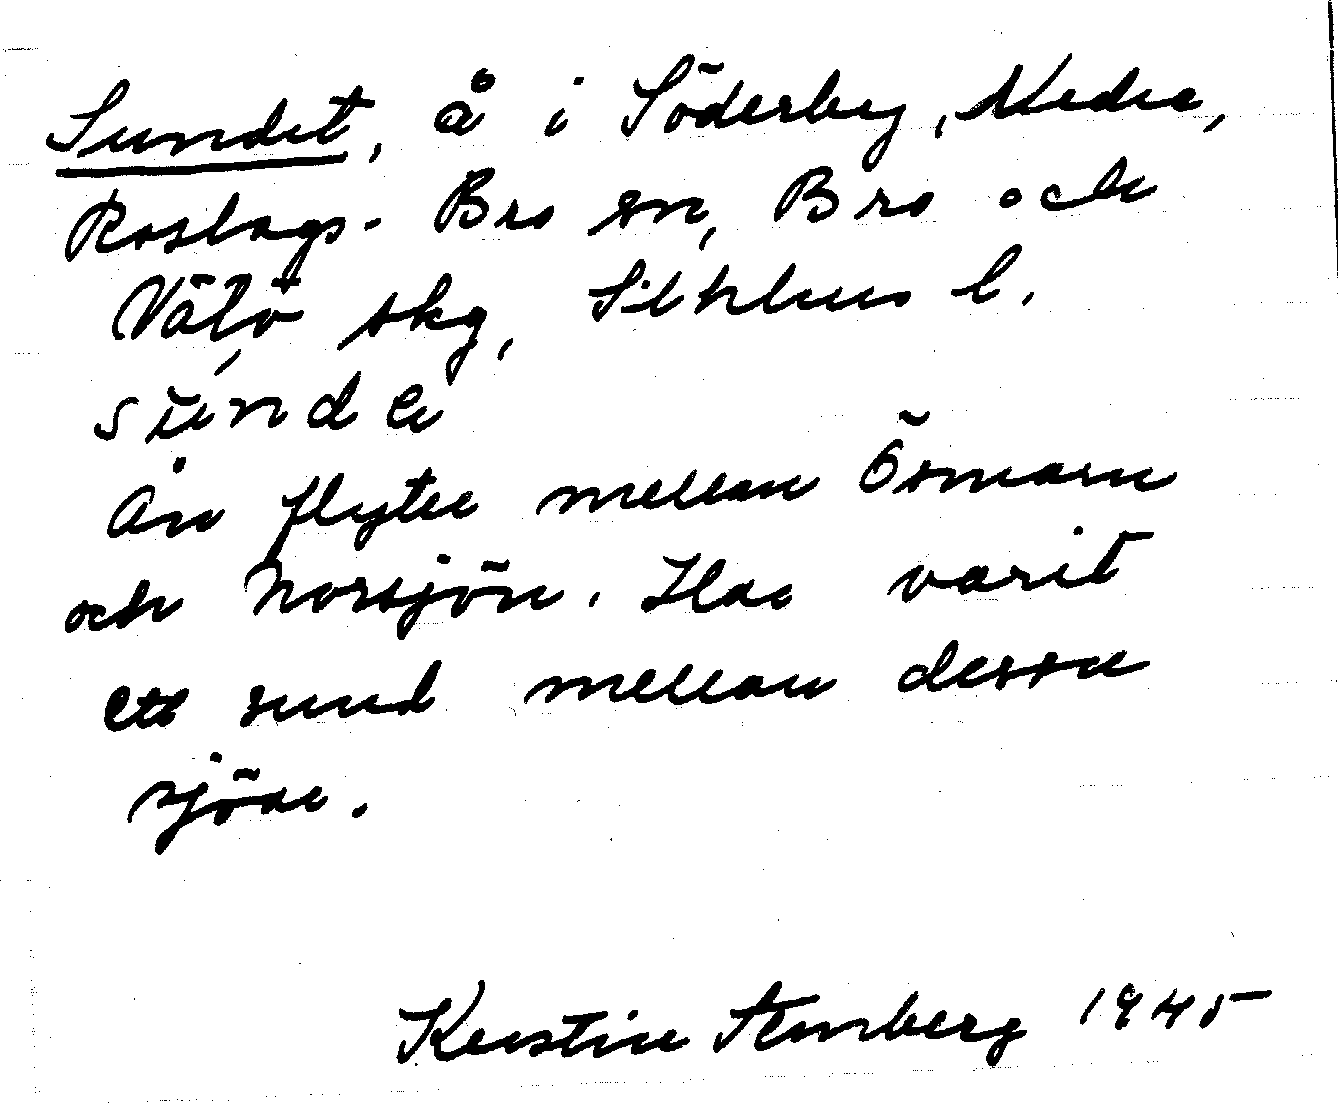 Sundet, å i Söderby, Nedre,
Roslags-Bro sn, Bro och
Vätö skg, Sthlms l.
súndə
Ån flyter mellan Ösmaren
och Norrsjön. Har varit
ett sund mellan dessa
sjöar.
Kerstin Stenberg 1945